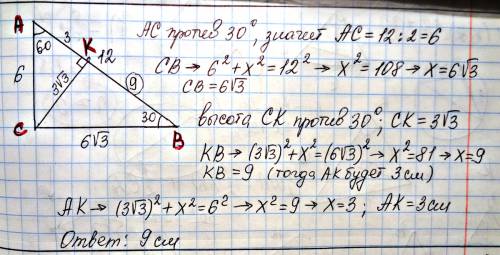 A
60 3
K
12
6
3√3
9
C
30
B
6√3
АС против 30°, значит АС = 12 : 2 = 6
СВ → 6² + x² = 12² → x² = 108 → x = 6√3
СВ = 6√3
высота СК против 30°; СК = 3√3
КВ → (3√3)² + x² = (6√3)² → x² = 81 → x = 9
КВ = 9 (тогда АК будет 3 см)
АК → (3√3)² + x² = 6² → x² = 9 → x = 3; АК = 3 см
Ответ: 9 см